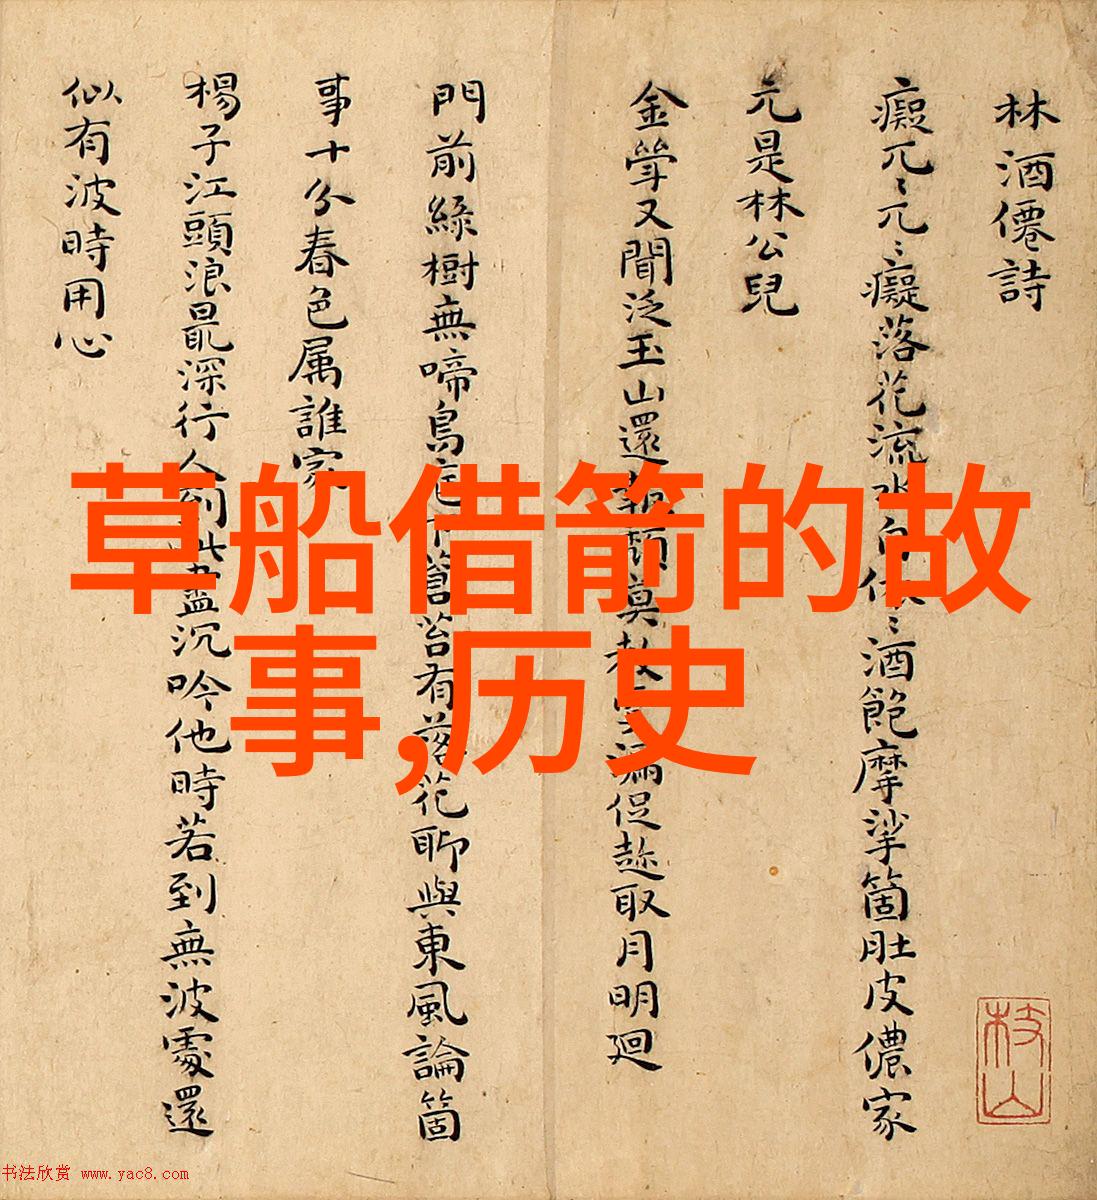 林酒僊詩
癡兀〻兀〻癡落花流水自依〻酒飽摩挲箇肚皮儂家
元是林公兒
金斝又聞泛玉山還報頹莫教更漏促趂取月明廻
門前綠樹無啼鳥庭下蒼苔有落花聊與東風論箇
事十分春色属誰家
楊子江頭浪最深行人到此盡沉吟他時若到無波處還
似有波時用心
枝山
草船借箭的故
事,历史
书法欣赏 www.yac8.com